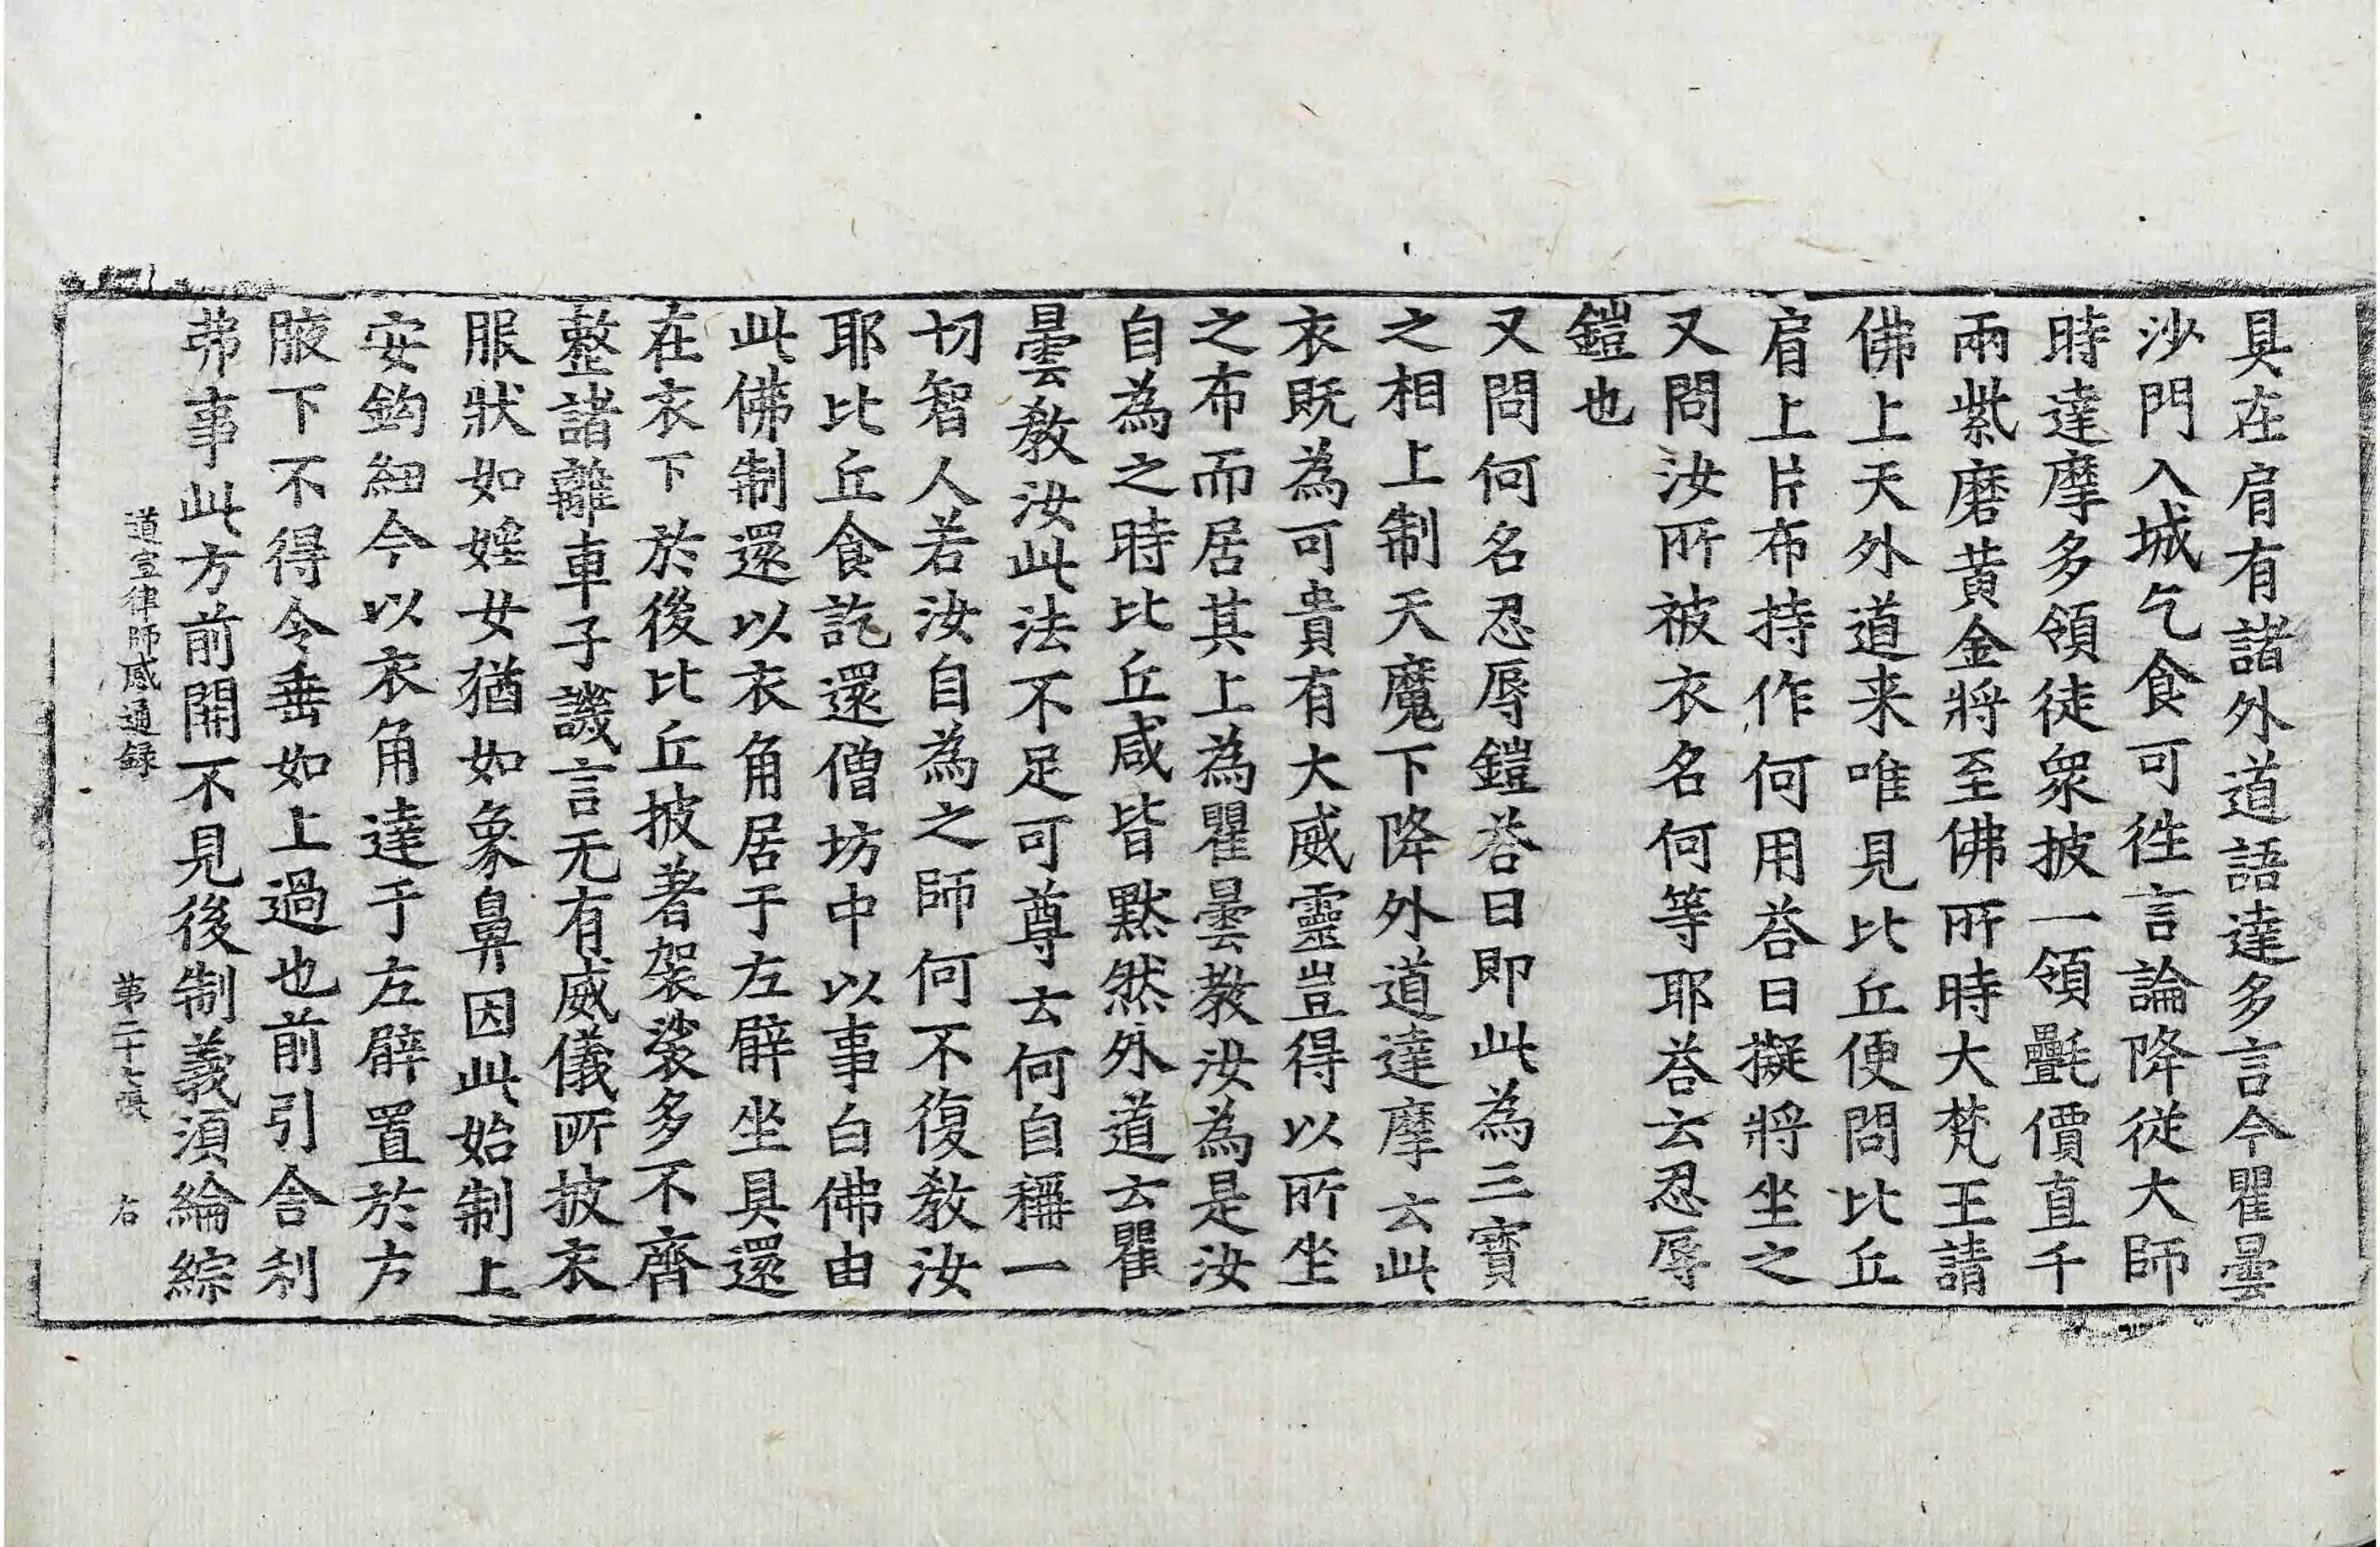 具在肩有諸外道語達多言今瞿曇
沙門入城乞食可徃言論降從大師
時達摩多領徒衆披一領㲲價直千
兩紫磨黃金將至佛所時大梵王請
佛上天外道来唯見比丘便問比丘
肩上片布持作何用荅曰擬將坐之
又問汝所被衣名何等耶荅云忍辱
鎧也
又問何名忍辱鎧荅曰即此為三寳
之相上制天魔下降外道達摩云此
衣既為可貴有大威靈豈得以所坐
之布而居其上為瞿曇教汝為是汝
自為之時比丘咸皆黙然外道云瞿
曇教汝此法不足可尊去何自稱一
切智人若汝自為之師何不復教汝
耶比丘食訖還僧坊中以事白佛由
此佛制還以衣角居于左臂坐具還
在衣下於後比丘披著袈裟多不齊
整諸離車子譏言无有威儀所披衣
服狀如婬女猶如象鼻因此始制上
安鈎紐今以衣角達于左臂置於方
腋下不得令垂如上過也前引舍利
弗事此方前開不見後制義湏綸綜
道宣律師感通録 第二十七張 右